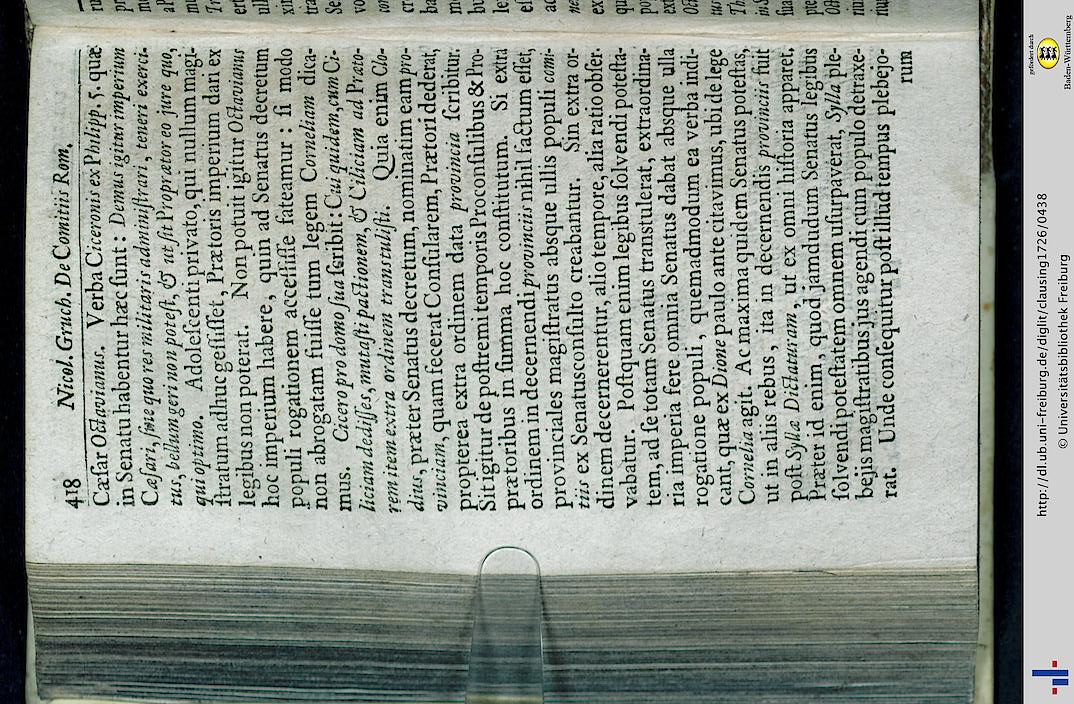 418 Nicol. Gruch. De Comitiis Rom.
Cæſar Octavianus. Verba Ciceronis ex Philipp 5. quæ
in Senatu habentur hæc ſunt: Demus igitur imperium
Cæſari, ſine quo res militaris adminiſtrari, teneri exerci-
tus, bellum geri non poteſt, & ut ſit Proprætor eo jure quo,
qui optimo. Adoleſcenti privato, qui nullum magi-
ſtratum adhuc geſſiſſet, Prætoris imperium dari ex
legibus non poterat. Non potuit igitur Octavianus
hoc imperium habere, quin ad Senatus decretum
populi rogationem acceſſiſſe fateamur: ſi modo
non abrogatam fuiſſe tum legem Corneliam dica-
mus. Cicero pro domo ſua ſcribit: Cui quidem, cum Ci-
liciam dediſſes, mutaſti pactionem, & Ciliciam ad Præto-
rem item extra ordinem transtuliſti. Quia enim Clo-
dius, præter Senatus decretum, nominatim eam pro-
vinciam, quam fecerat Conſularem, Prætori dederat,
propterea extra ordinem data provincia ſcribitur.
Sit igitur de poſtremi temporis Proconſulibus & Pro-
prætoribus in ſumma hoc conſtitutum. Si extra
ordinem in decernendi provinciis nihil factum eſſet,
provinciales magiſtratus absque ullis populi comi-
tiis ex Senatusconſulto creabantur. Sin extra or-
dinem decernerentur, alio tempore, alia ratio obſer-
vabatur. Poſtquam enim legibus ſolvendi poteſta-
tem, ad ſe totam Senatus transtulerat, extraordina-
ria imperia fere omnia Senatus dabat absque ulla
rogatione populi, quemadmodum ea verba indi-
cant, quæ ex Dione paulo ante citavimus, ubi de lege
Cornelia agit. Ac maxima quidem Senatus poteſtas,
ut in aliis rebus, ita in decernendis provinciis fuit
poſt Syllæ Dictaturam, ut ex omni hiſtoria apparet,
Præter id enim, quod jamdudum Senatus legibus
ſolvendi poteſtatem omnem uſurpaverat, Sylla ple-
bejis magiſtratibus jus agendi cum populo detraxe-
rat. Unde conſequitur poſt illud tempus plebejo-
rum
http://dl.ub.uni-freiburg.de/diglit/clausing1726/0438
© Universitätsbibliothek Freiburg
gefördert durch
Baden-Württemberg